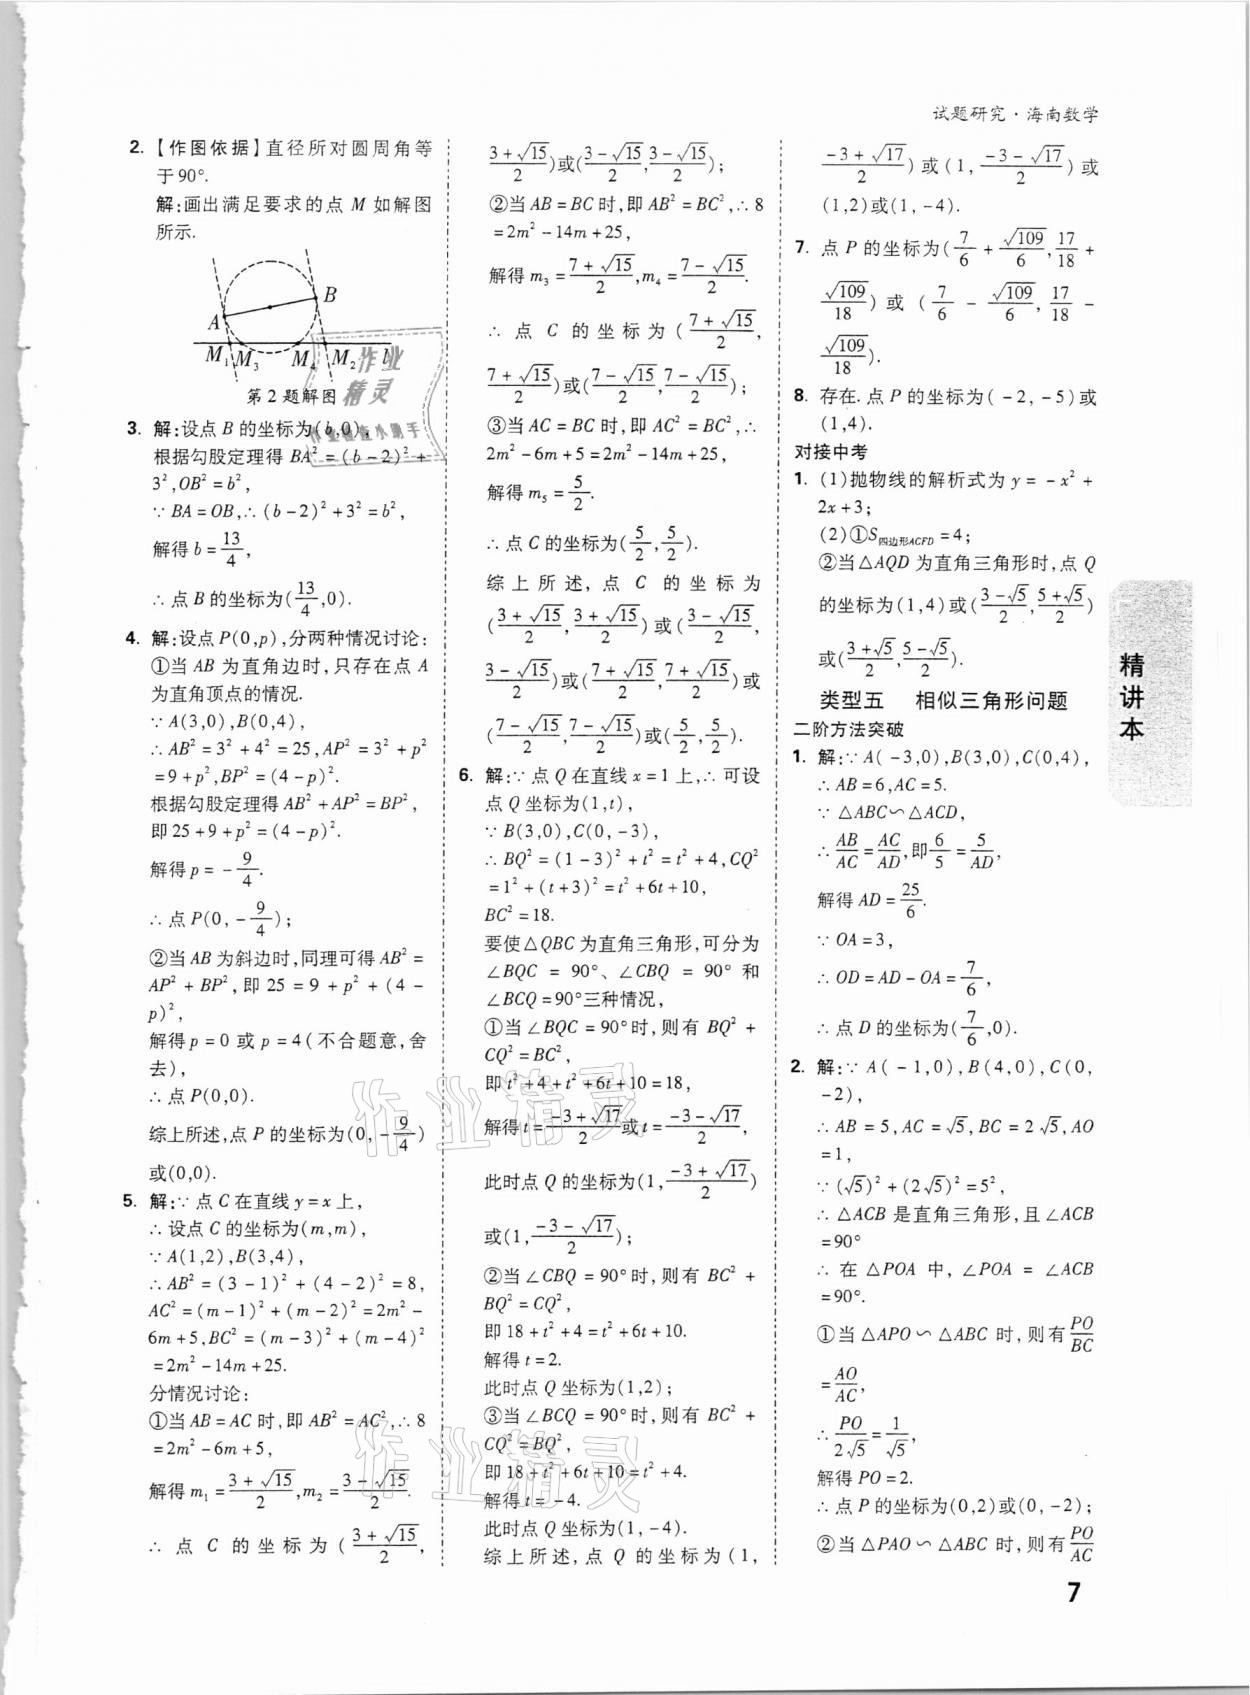 试题研究·海南数学
2. 【作图依据】直径所对圆周角等
于90°.
解:画出满足要求的点 M 如解图
所示.
A
B
M₁ M₃ M₄ M₂ l
第2题解图
3. 解:设点 B 的坐标为(b,0),
根据勾股定理得 BA²=(b-2)²+
3²,OB²=b²,
∵BA=OB,∴(b-2)²+3²=b²,
解得 b=13/4,
∴点 B 的坐标为(13/4,0).
4. 解:设点 P(0,p),分两种情况讨论:
①当 AB 为直角边时,只存在点 A
为直角顶点的情况.
∵A(3,0),B(0,4),
∴AB²=3²+4²=25,AP²=3²+p²
=9+p²,BP²=(4-p)².
根据勾股定理得 AB²+AP²=BP²,
即 25+9+p²=(4-p)².
解得 p=-9/4.
∴点 P(0,-9/4);
②当 AB 为斜边时,同理可得 AB²=
AP²+BP²,即 25=9+p²+(4-
p)²,
解得 p=0 或 p=4(不合题意,舍
去),
∴点 P(0,0).
综上所述,点 P 的坐标为(0,-9/4)
或(0,0).
5. 解:∵点 C 在直线 y=x 上,
∴设点 C 的坐标为(m,m),
∵A(1,2),B(3,4),
∴AB²=(3-1)²+(4-2)²=8,
AC²=(m-1)²+(m-2)²=2m²-
6m+5,BC²=(m-3)²+(m-4)²
=2m²-14m+25.
分情况讨论:
①当 AB=AC 时,即 AB²=AC²,∴8
=2m²-6m+5,
解得 m₁=(3+√15)/2,m₂=(3-√15)/2.
∴点 C 的坐标为((3+√15)/2,
(3+√15)/2)或((3-√15)/2,(3-√15)/2);
②当 AB=BC 时,即 AB²=BC²,∴8
=2m²-14m+25,
解得 m₃=(7+√15)/2,m₄=(7-√15)/2.
∴点 C 的坐标为((7+√15)/2,
(7+√15)/2)或((7-√15)/2,(7-√15)/2);
③当 AC=BC 时,即 AC²=BC²,∴
2m²-6m+5=2m²-14m+25,
解得 m₅=5/2.
∴点 C 的坐标为(5/2,5/2).
综上所述,点 C 的坐标为
((3+√15)/2,(3+√15)/2)或((3-√15)/2,
(3-√15)/2)或((7+√15)/2,(7+√15)/2)或
((7-√15)/2,(7-√15)/2)或(5/2,5/2).
6. 解:∵点 Q 在直线 x=1 上,∴可设
点 Q 坐标为(1,t),
∵B(3,0),C(0,-3),
∴BQ²=(1-3)²+t²=t²+4,CQ²
=1²+(t+3)²=t²+6t+10,
BC²=18.
要使△QBC 为直角三角形,可分为
∠BQC=90°、∠CBQ=90°和
∠BCQ=90°三种情况,
①当∠BQC=90°时,则有 BQ²+
CQ²=BC²,
即 t²+4+t²+6t+10=18,
解得 t=(-3+√17)/2或 t=(-3-√17)/2,
此时点 Q 的坐标为(1,(-3+√17)/2)
或(1,(-3-√17)/2);
②当∠CBQ=90°时,则有 BC²+
BQ²=CQ²,
即 18+t²+4=t²+6t+10.
解得 t=2.
此时点 Q 坐标为(1,2);
③当∠BCQ=90°时,则有 BC²+
CQ²=BQ²,
即 18+t²+6t+10=t²+4.
解得 t=-4.
此时点 Q 坐标为(1,-4).
综上所述,点 Q 的坐标为(1,
(-3+√17)/2)或(1,(-3-√17)/2)或
(1,2)或(1,-4).
7. 点 P 的坐标为(7/6+√109/6,17/18+
√109/18)或(7/6-√109/6,17/18-
√109/18).
8. 存在.点 P 的坐标为(-2,-5)或
(1,4).
对接中考
1. (1)抛物线的解析式为 y=-x²+
2x+3;
(2)①S四边形ACFD=4;
②当△AQD 为直角三角形时,点 Q
的坐标为(1,4)或((3-√5)/2,(5+√5)/2)
或((3+√5)/2,(5-√5)/2).
类型五 相似三角形问题
二阶方法突破
1. 解:∵A(-3,0),B(3,0),C(0,4),
∴AB=6,AC=5.
∵△ABC∽△ACD,
∴AB/AC=AC/AD,即6/5=5/AD,
解得 AD=25/6.
∵OA=3,
∴OD=AD-OA=7/6,
∴点 D 的坐标为(7/6,0).
2. 解:∵A(-1,0),B(4,0),C(0,
-2),
∴AB=5,AC=√5,BC=2√5,AO
=1,
∵(√5)²+(2√5)²=5²,
∴△ACB 是直角三角形,且∠ACB
=90°
∴在△POA 中,∠POA=∠ACB
=90°.
①当△APO∽△ABC 时,则有PO/BC
=AO/AC,
∴PO/2√5=1/√5,
解得 PO=2.
∴点 P 的坐标为(0,2)或(0,-2);
②当△PAO∽△ABC 时,则有PO/AC
精讲本
7
作业精灵
作业检查小助手
作业精灵
作业精灵